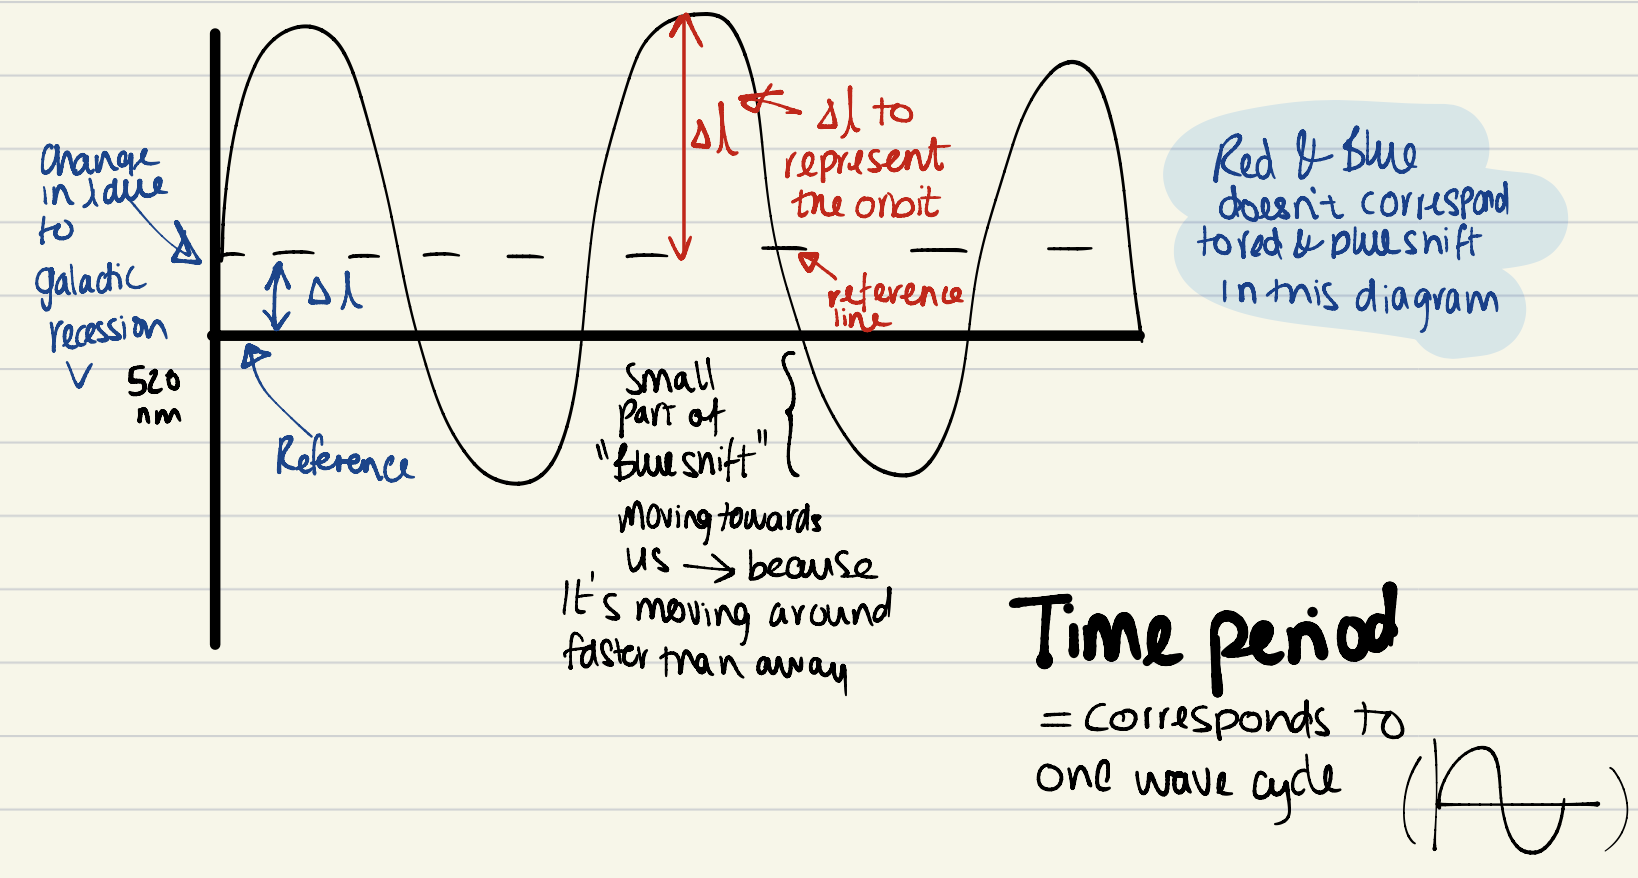 Change
in λ due
to
galactic
recession
V
520
nm
Δλ
Reference
Δλ
Δλ to
represent
the orbit
reference
line
Small
part of
"Blueshift"
moving towards
us → because
It's moving around
faster than away
Red & Blue
doesn't correspond
to red & blue shift
in this diagram
Time period
= corresponds to
one wave cycle
( )